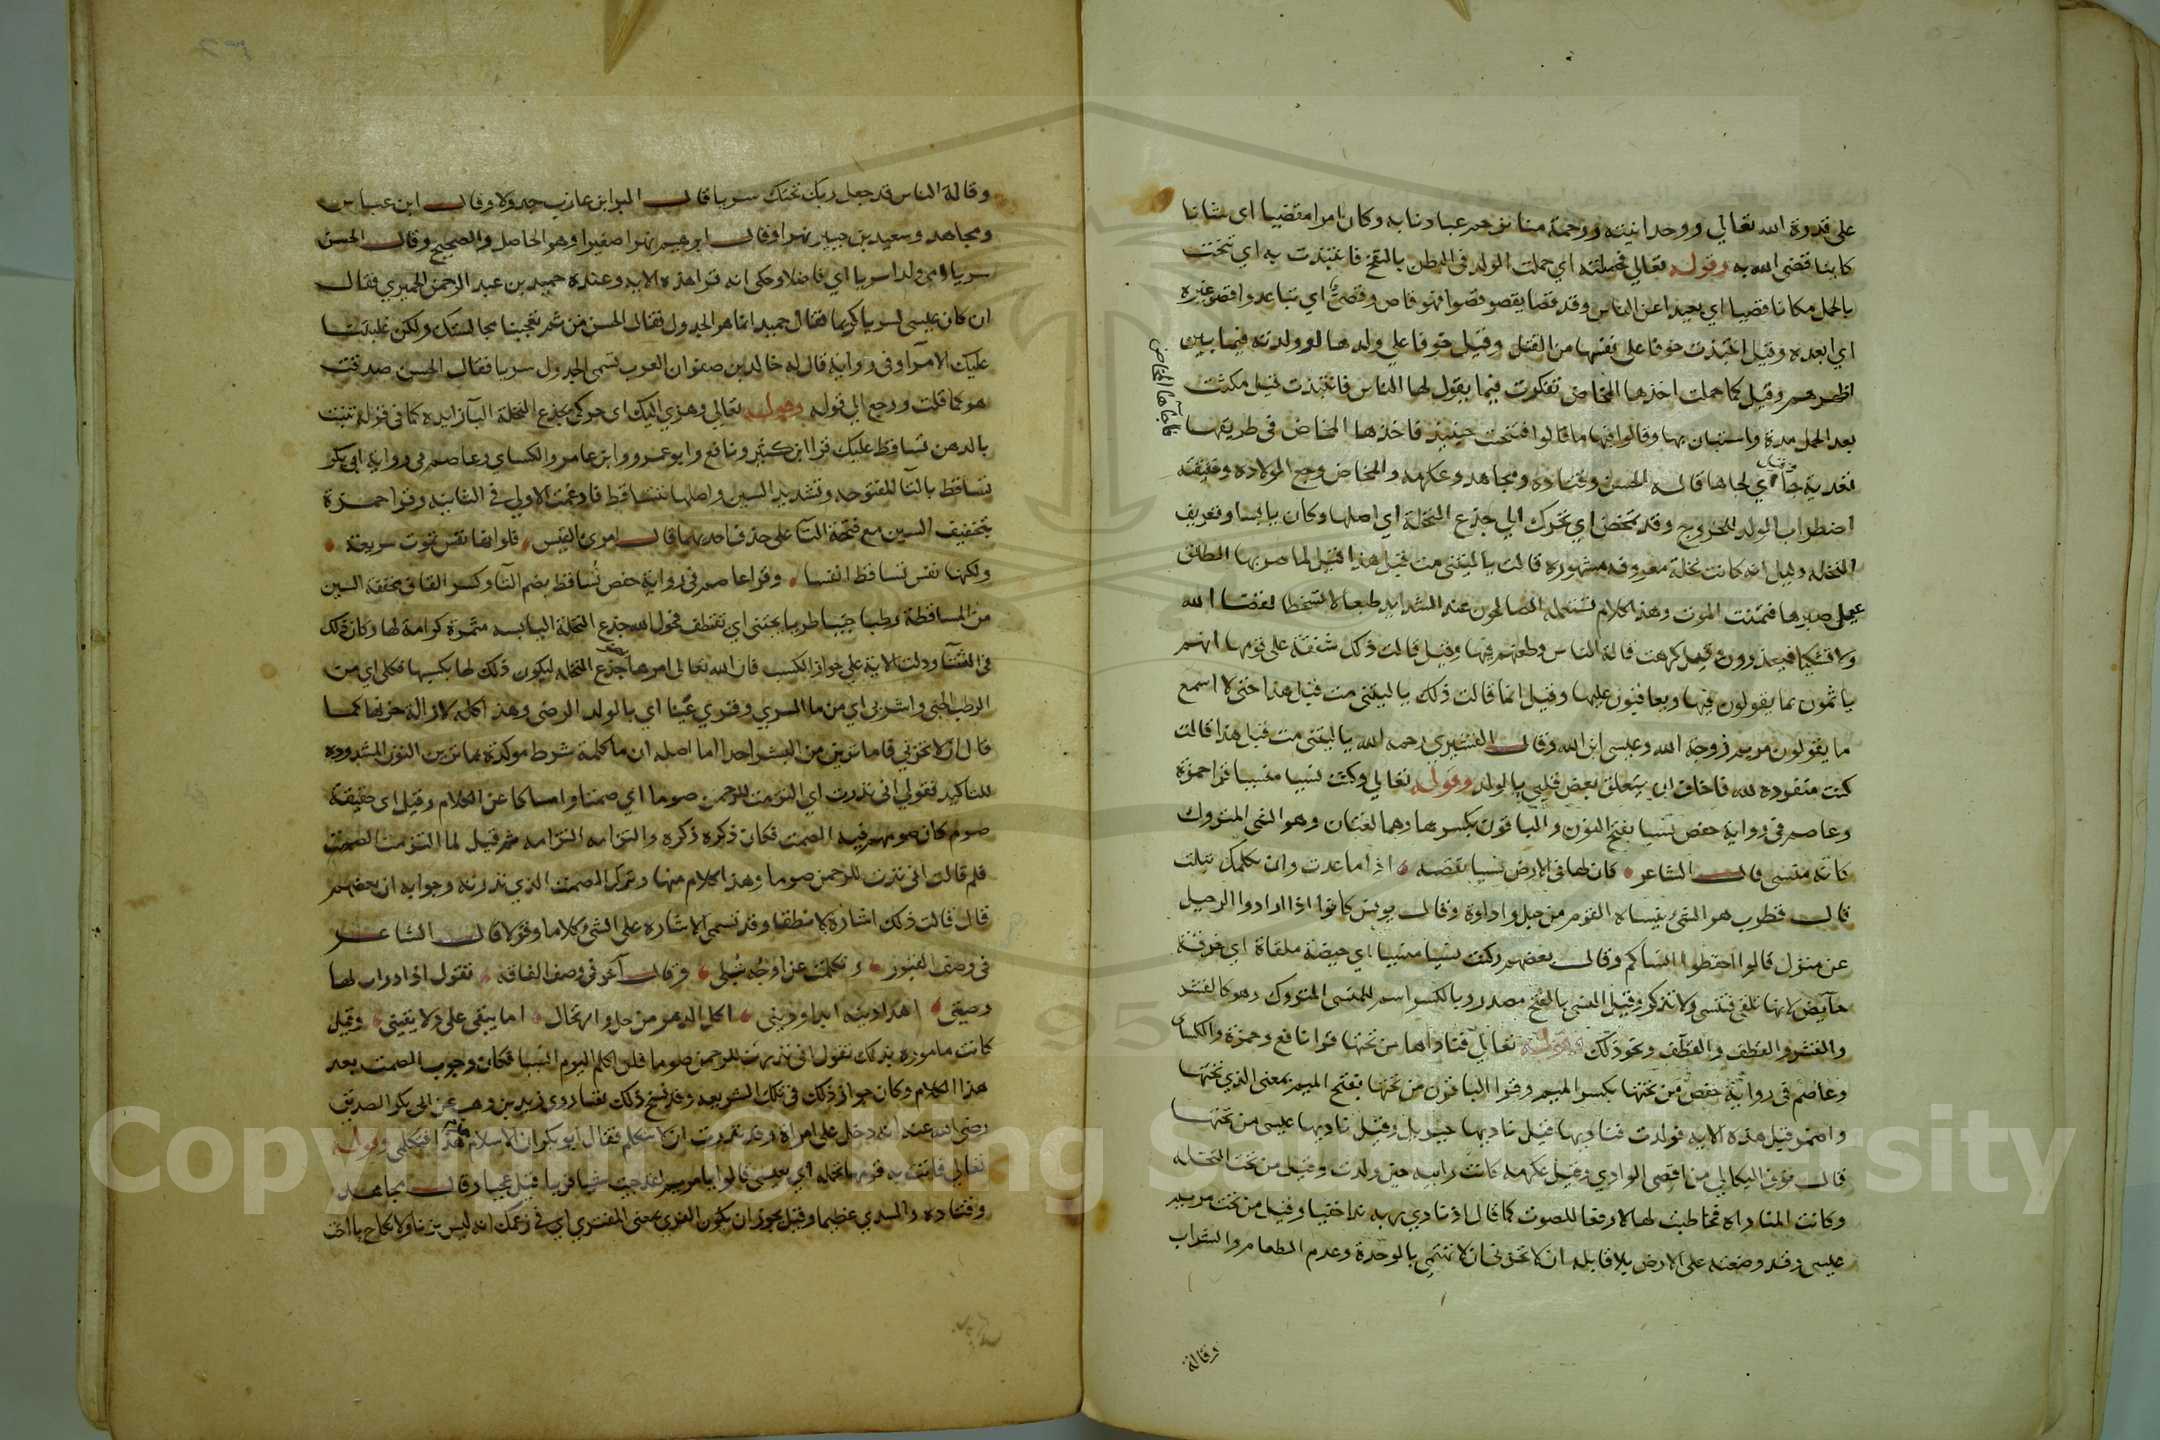 على قدرة الله تعالي ووحدانيته ورحمة منا نرحم عبادنا به وكان امرا مقضيا اى شانا
كاينا قضى الله به وقوله تعالي فحملته اي حملت الولد فى البطن بالنفخ فانتبذت به اي تنحت
بالحمل مكانا قصيا اي بعيدا عن الناس وقد قصا يقصو قصوا فهو قاص وقصي اي تباعد واقصي غيره
اي ابعده وقيل انتبذت خوفا على نفسها من القتل وقيل خوفا علي ولدها لو ولدته فيما بين
اظهرهم وقيل كما حملت اخذها المخاض تفكرت فيما يقول لها الناس فانتبذت قيل مكثت
بعد الحمل مدة واستبان بها وقالوا فيها ما قالوا فتنحت حينيذ فاخذها المخاض فى طريقها
فاجآها المخاض
تعدية جآ اي لجاها قاله الحسن وقتاده ومجاهد وعكرمه والمخاض وجع الولاده وحقيقته
اضطراب الولد للخروج وقد تمخض اي تحرك الي جذع النخلة اي اصلها وكان يابسا وتعريف
النخله دليل انه كانت نخلة معروفه مشهوره قالت ياليتني مت قبل هذا قيل لما ضربها الطلق
عيل صبرها فتمنت الموت وهذا كلام تستعمله الصالحون عند الشدايد طبعا لا تسخطا لقضا الله
ولا تشكيا فيعذرون وقيل كرهت قالة الناس وطعنهم فيها وقيل قالت ذلك شفقة على قومها انهم
ياثمون بما يقولون فيها ويعاقبون عليها وقيل انما قالت ذلك ياليتني مت قبل هذا حتى لا اسمع
ما يقولون مريم زوجة الله وعيسى ابن الله وقال القشيري رحمه الله ياليتنى مت قبل هذا قالت
كنت منفرده لله فاخاف ان يتعلق بعض قلبي بالولد وقوله تعالي وكنت نسيا منسيا قرا حمزة
وعاصم في رواية حفص نسيا بفتح النون والباقون بكسرها وهما لغتان وهو الشي المتروك
كانه منسى قال الشاعر كان لها فى الارض نسيا تقصه اذا ما غدت وان تكلمك تبلت
قال قطرب هو الشئ ينساه القوم من حبل واداوة وقال يونس كانوا اذا ارادوا الرحيل
عن منزل قالوا احفظوا انساكم وقال بعضهم وكنت نسيا منسيا اي حيضة ملقاة اي خرقة
حآيض لانها تلقى فتنسى ولا تذكر وقيل النسى بالفتح مصدر وبالكسر اسم للمنسى المتروك وهو كالقشر
والقشر والقطف والقطف ونحو ذلك وقوله تعالي فناداها من تحتها قرا نافع وحمزة والكساى
وعاصم فى رواية حفص من تحتها بكسر الميم وقرا الباقون من تحتها بفتح الميم بمعنى الذي تحتها
واضمر قبل هذه الاية فولدت فناديها قيل ناديها جبريل وقيل ناديها عيسى من تحتها
قال نوف البكالي من اقصى الوادي وقيل عكرمه كانت رابيه حين ولدت وقيل من تحت النخله
وكانت المناداه مخاطبت لها لا رفعا للصوت كما قال اذ نادي ربه ندا خفيا وقيل من تحت مريم
عيسى وقد وضعته على الارض بلا قابله ان لا تحزنى ان لا تهتمي بالوحدة وعدم الطعام والشراب
وقالة
وقالة الناس قد جعل ربك تحتك سريا قال البرا ابن عازب جدولا وقال ابن عباس
ومجاهد وسعيد بن جبير نهرا وقال ابرهيم نهرا صغيرا وهو الحاصل والصحيح وقال الحسن
سريا اى ولدا سريا اي فاضلا وحكى انه قرا هذه الايه وعنده حميد بن عبد الرحمن الحميري فقال
ان كان عيسى لسريا كريما فقال حميد انما هو الجدول فقال الحسن من ثم تعجبنا مجالستك ولكن غلبتنا
عليك الامرآ وفى رواية قال له خالد بن صفوان العرب تسمى الجدول سريا فقال الحسن صدقت
هو كما قلت ورجع الي قوله وقوله تعالي وهزي اليك اى حركي بجذع النخلة البآ زايده كما فى قوله تنبت
بالدهن تساقط عليك قرا ابن كثير ونافع وابو عمرو وابن عامر والكساي وعاصم فى رواية ابى بكر
تساقط بالتا المفتوحه وتشديد السين واصلها تتساقط فادغمت الاولي فى الثانيه وقرا حمزة
بتخفيف السين مع فتحة التآ على حذف احديهما قال امرئ القيس فلو انها نفس تموت سريعة
ولكنها نفس تساقط انفسا وقرا عاصم فى رواية حفص تُساقط بضم التا وكسر القاف مخففة السين
من المساقطة رطبا جنيا طريا يجتنى اي تقتطف فحول الله جذع النخلة اليابسه مثمرة كرامة لها وكان ذلك
فى الشتآ ودلت الاية علي جواز الكسب فان الله تعالى امرها بهز جذع النخله ليكون ذلك لها بكسبها فكلى اي من
الرطب الجنى واشربى اي من ما السري وقري عينا اي بالولد الرضى وهذا كله لازالة حزنها كما
قال الا تحزني فاما ترين من البشر احدا اما اصله ان ما كلمة شرط موكدة بما ترين النون المشدوده
للتاكيد فقولي انى نذرت اي التزمت للرحمن صوما اي صمتا وامساكا عن الكلام وقيل اى حقيقة
صوم كان صومهم فيه الصمت فكان ذكره ذكره والتزامه التزامه ثم قيل لما التزمت الصمت
فلم قالت انى نذرت للرحمن صوما وهذا كلام منها وترك الصمت الذي نذرته وجوابه ان بعضهم
قال قالت ذلك اشارة لا نطقا وقد تسمى الاشاره على الشئ كلاما وقولا قال الشاعر
فى وصف القبور وتكلمت عن اوجُه تُبلى وقال آخر في وصف الناقه تقول اذا درات لها
وضينى اهذا دينه ابدا ودينى اكل الدهر من حل وارتحال اما يبقى على ولا يقينى وقيل
كانت ماموره بذلك تقول انى نذرت للرحمن صوما فلن اكلم اليوم انسيا فكان وجوب الصمت بعد
هذا الكلام وكان جواز ذلك فى تلك الشريعه وقد نسخ ذلك فقد روى زيد بن وهب عن ابى بكر الصديق
رضى الله عنه انه دخل على امراة وقد نذرت ان لا تتكلم فقال ابو بكر ان الاسلام هدم هذا فتكلمى وقوله
تعالي فاتت به قومها تحمله اي بعيسى قالوا يا مريم لقد جيت شيا فريا قيل عجبا وقال مجاهد
وقتاده والسدي عظيما وقيل يجوز ان يكون الفري بمعنى المفتري اي في زعمك انه ليس بزنا ولا نكاح